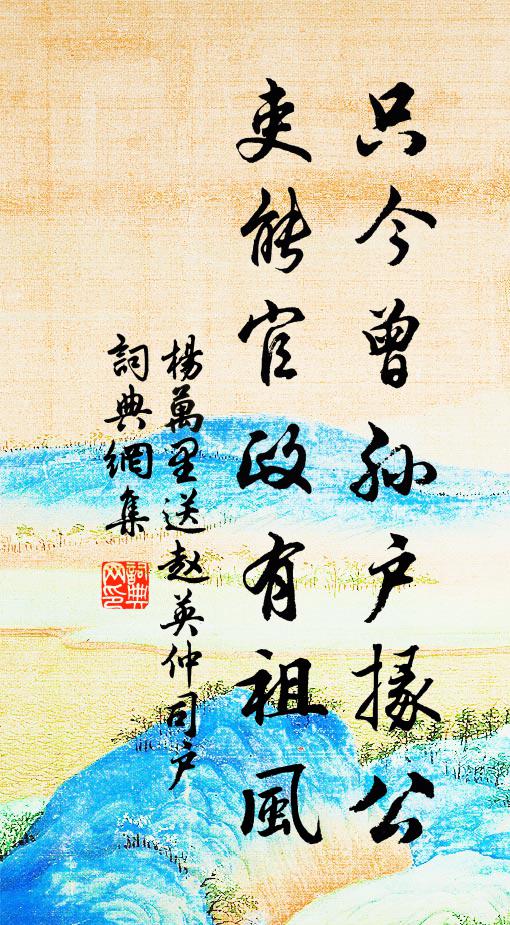 只今曾孙户掾公
吏能官政有祖風
楊萬里送赵英仲司户
詞典網集
詞典网印